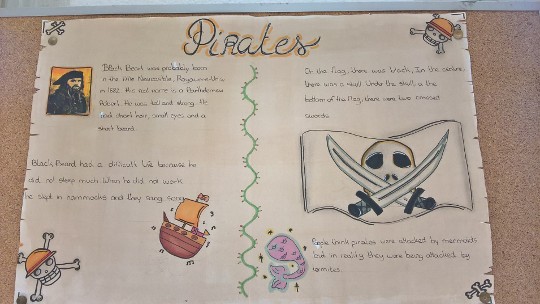 Pirates
Black Beard was probably born
in the
in 1682. His real name is a Bartholomew
Robert. He was tall and strong. He
had short hair, small eyes and a
short beard.
Black Beard had a difficult life because he
did not sleep much when he did not work
he slept in hammocks and they sang song
On the flag, there was black, In the centre,
there was a skull. Under the skull, at the
bottom of the flag, there were two crossed
swords.
think pirates were attacked by mermaids
but in reality they were being attacked by